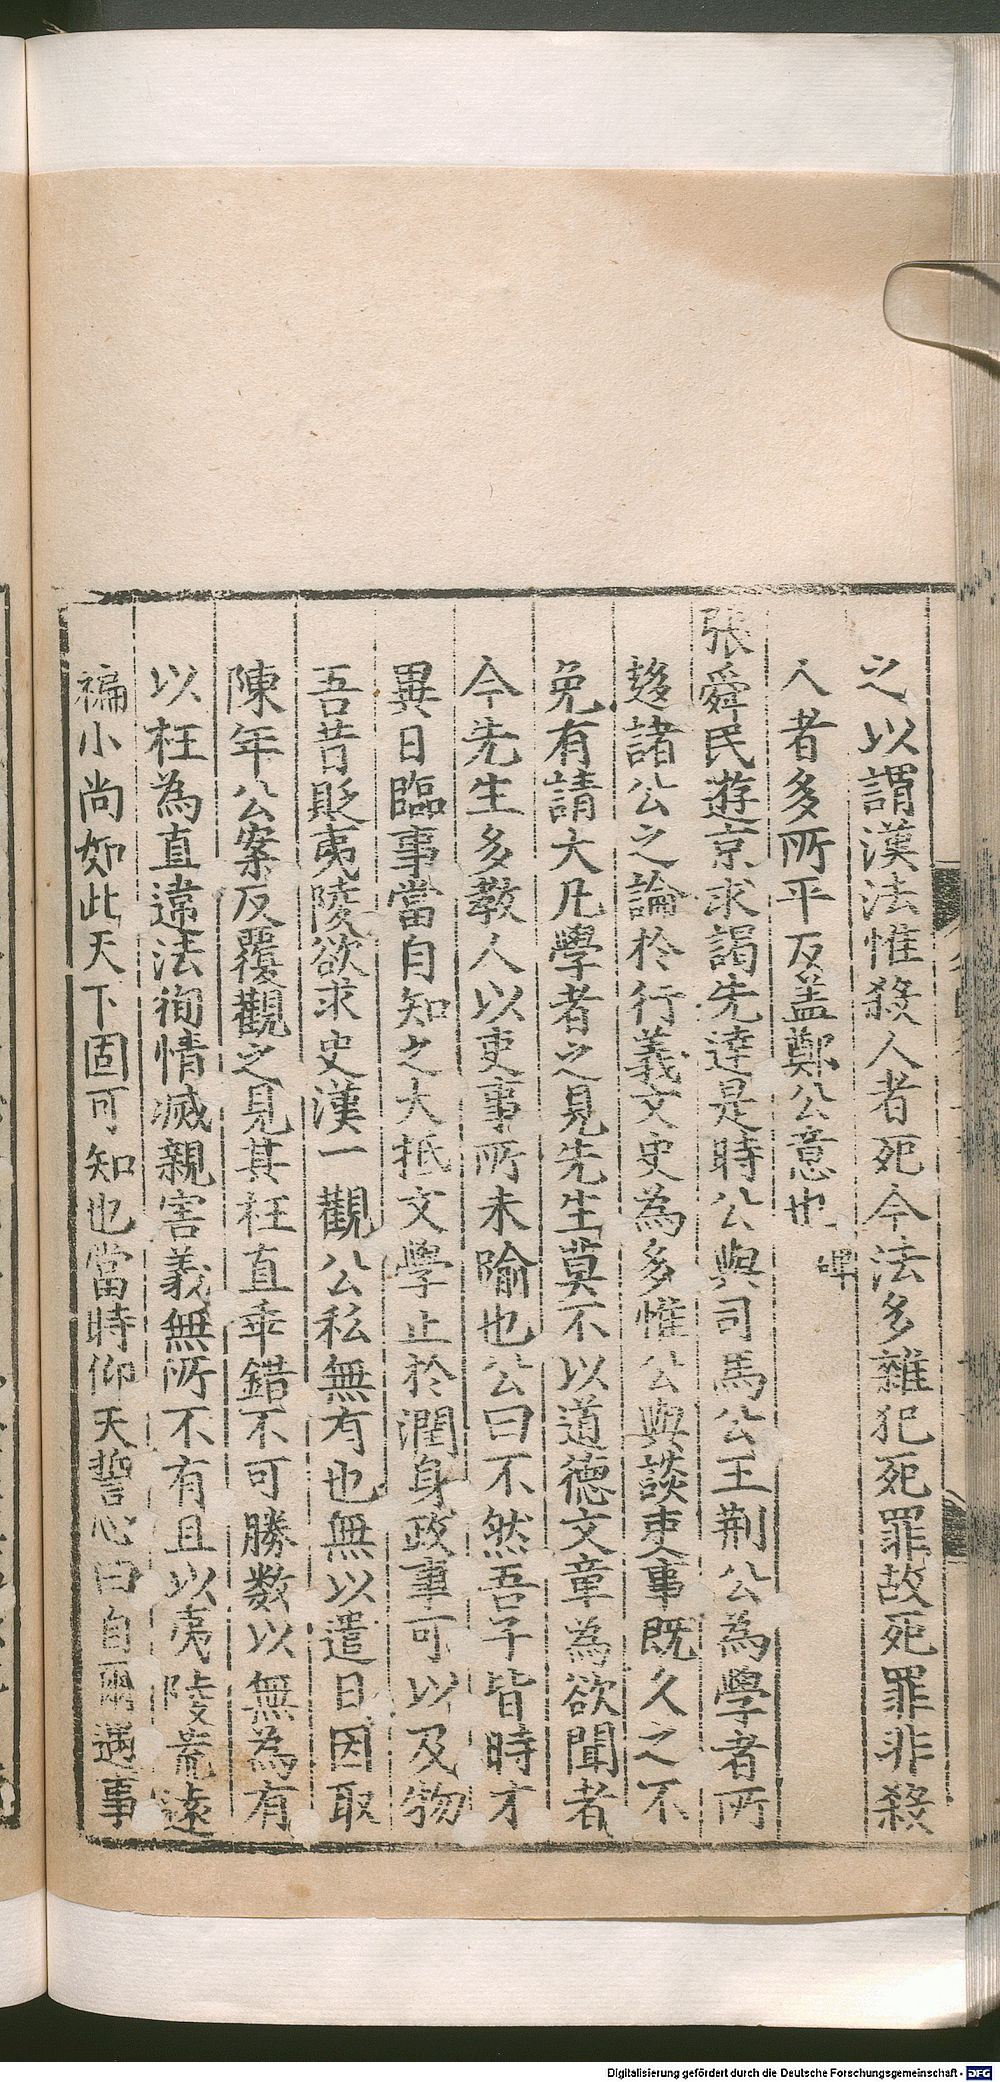 之以謂漢法惟殺人者死今法多雜犯死罪故死罪非殺
人者多所平反盖鄭公意也 碑
張舜民遊京求謁先達是時公與司馬公王荆公為學者所
趍諸公之論於行義文史為多惟公與談吏事既久之不
免有請大凡學者之見先生莫不以道德文章為欲聞者
今先生多教人以吏事所未喻也公曰不然吾子皆時才
異日臨事當自知之大抵文學止於潤身政事可以及物
吾昔貶夷陵欲求史漢一觀公私無有也無以遣日因取
陳年公案反覆觀之見其枉直乖錯不可勝数以無為有
以枉為直違法徇情滅親害義無所不有且以夷陵荒遠
褊小尚如此天下固可知也當時仰天誓心曰自爾遇事
Digitalisierung gefördert durch die Deutsche Forschungsgemeinschaft - DFG